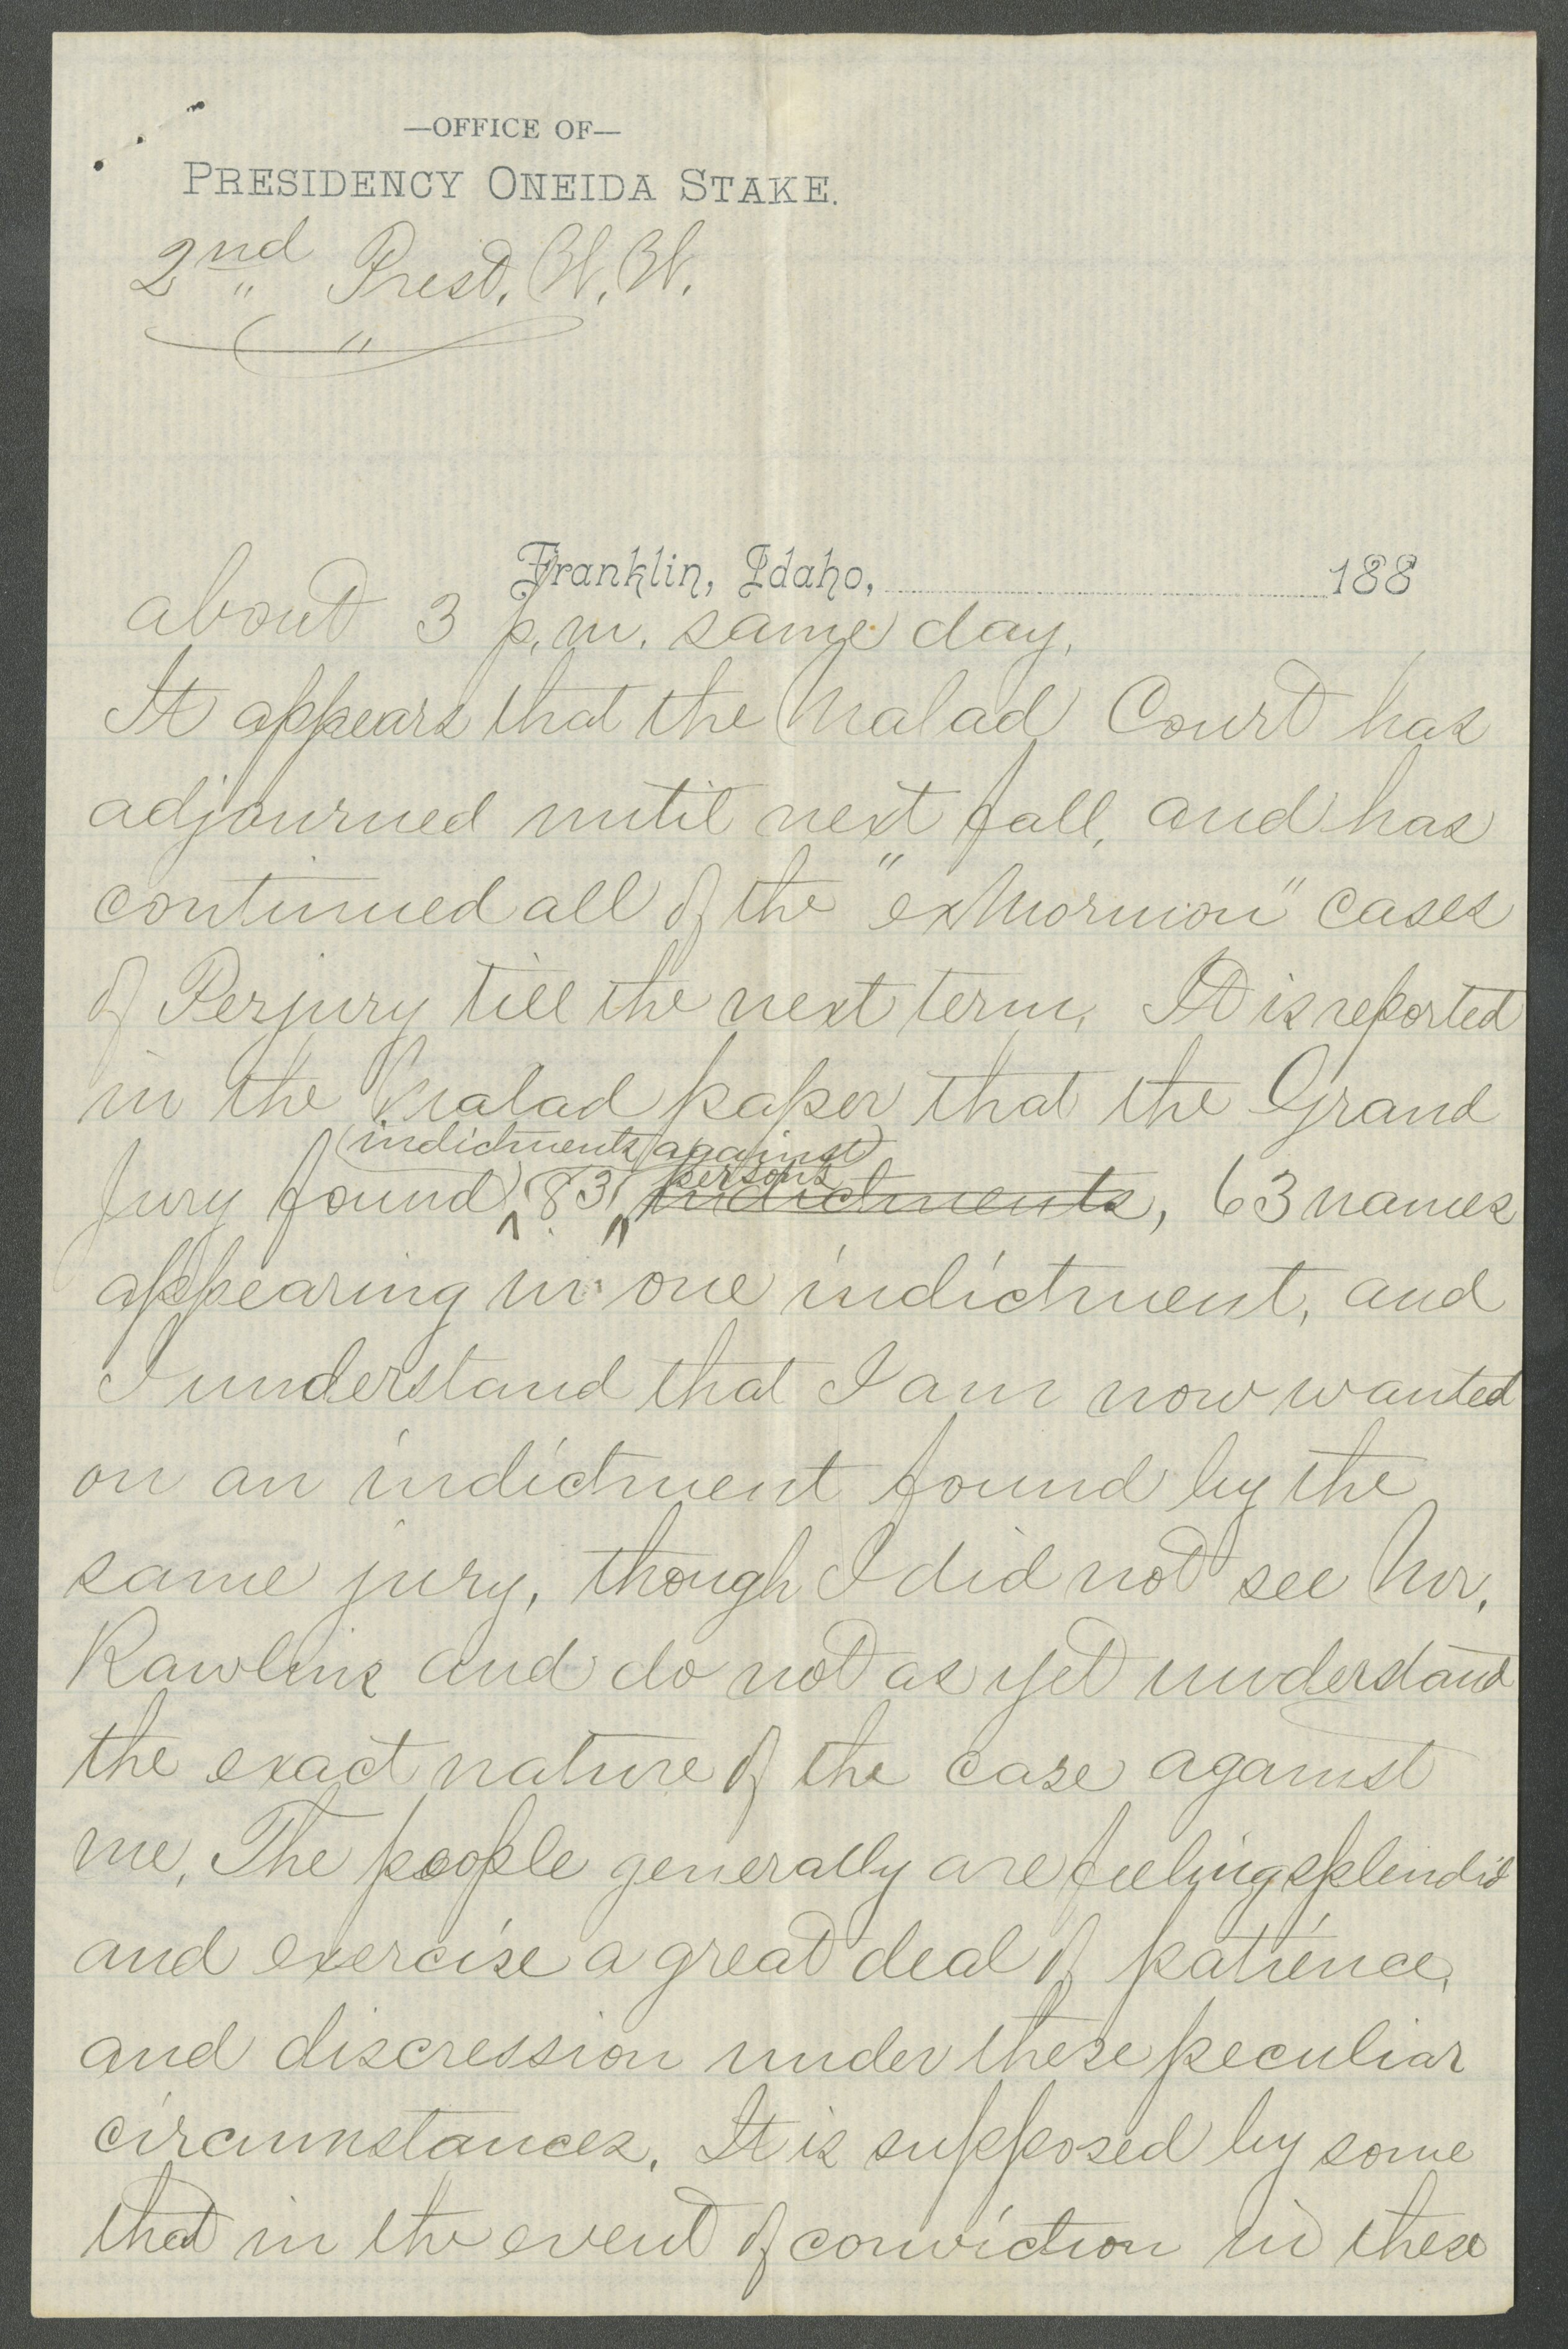 —OFFICE OF—
PRESIDENCY ONEIDA STAKE.
2nd Prest. W. W.
Franklin, Idaho, 188
about 3 p.m. same day.
It appears that the Malad Court has
adjourned until next fall, and has
continued all of the "ex Mormon" cases
of Perjury till the next term. It is reported
in the Malad paper that the Grand
indictments against
persons
Jury found 83 indictments, 63 names
appearing in one indictment, and
I understand that I am now wanted
on an indictment found by the
same jury, though I did not see Mr.
Rawlins and do not as yet understand
the exact nature of the case against
me. The people generally are feeling splendid
and exercise a great deal of patience,
and discression under these peculiar
circumstances. It is supposed by some
that in the event of conviction in these